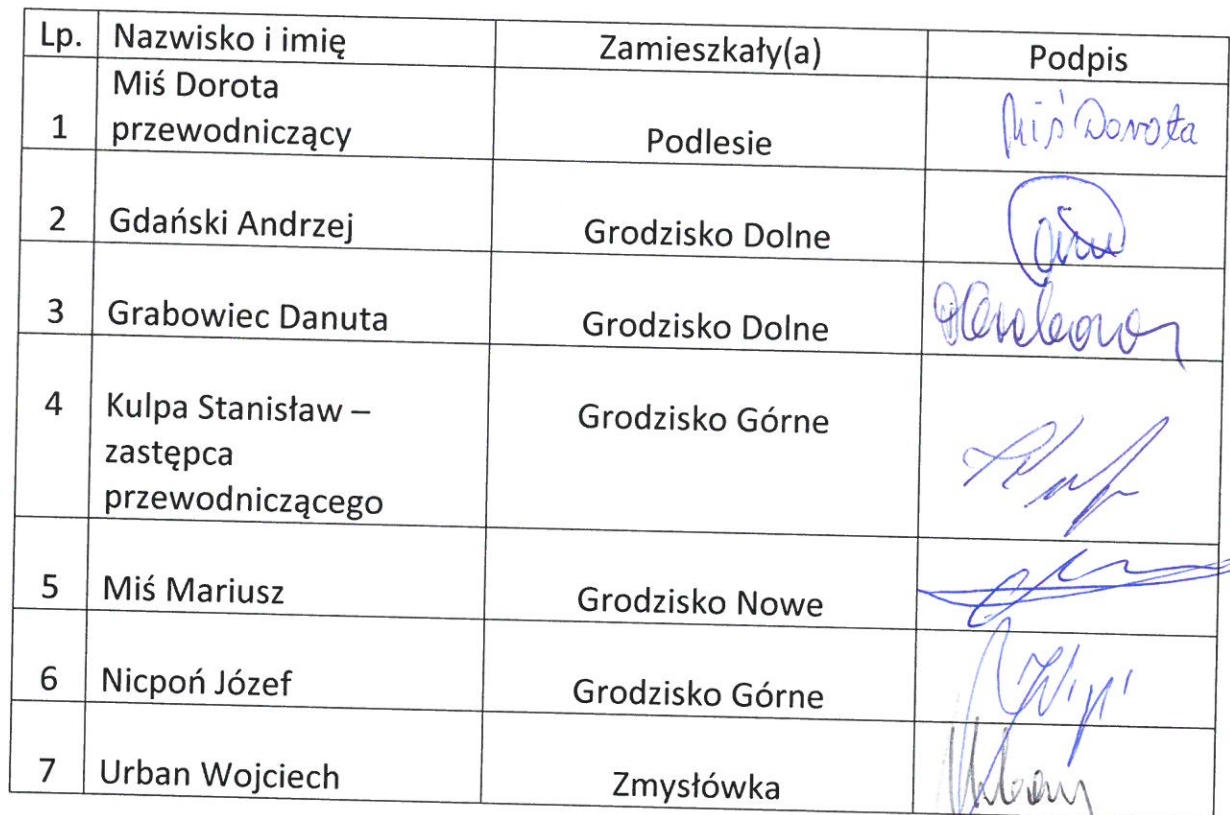 Lp. Nazwisko i imię Zamieszkały(a) Podpis
Miś Dorota
1 przewodniczący Podlesie Miś Dorota
2 Gdański Andrzej Grodzisko Dolne
3 Grabowiec Danuta Grodzisko Dolne
4 Kulpa Stanisław – Grodzisko Górne
zastępca
przewodniczącego
5 Miś Mariusz Grodzisko Nowe
6 Nicpoń Józef Grodzisko Górne
7 Urban Wojciech Zmysłówka